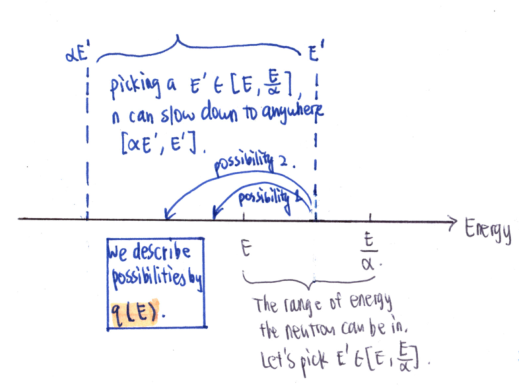 αE'
E'
picking a E' ∈ [E, E/α],
n can slow down to anywhere
[αE', E'].
possibility 2.
possibility 1
Energy
E
E/α.
We describe
possibilities by
q(E).
The range of energy
the neutron can be in.
Let's pick E' ∈ [E, E/α].